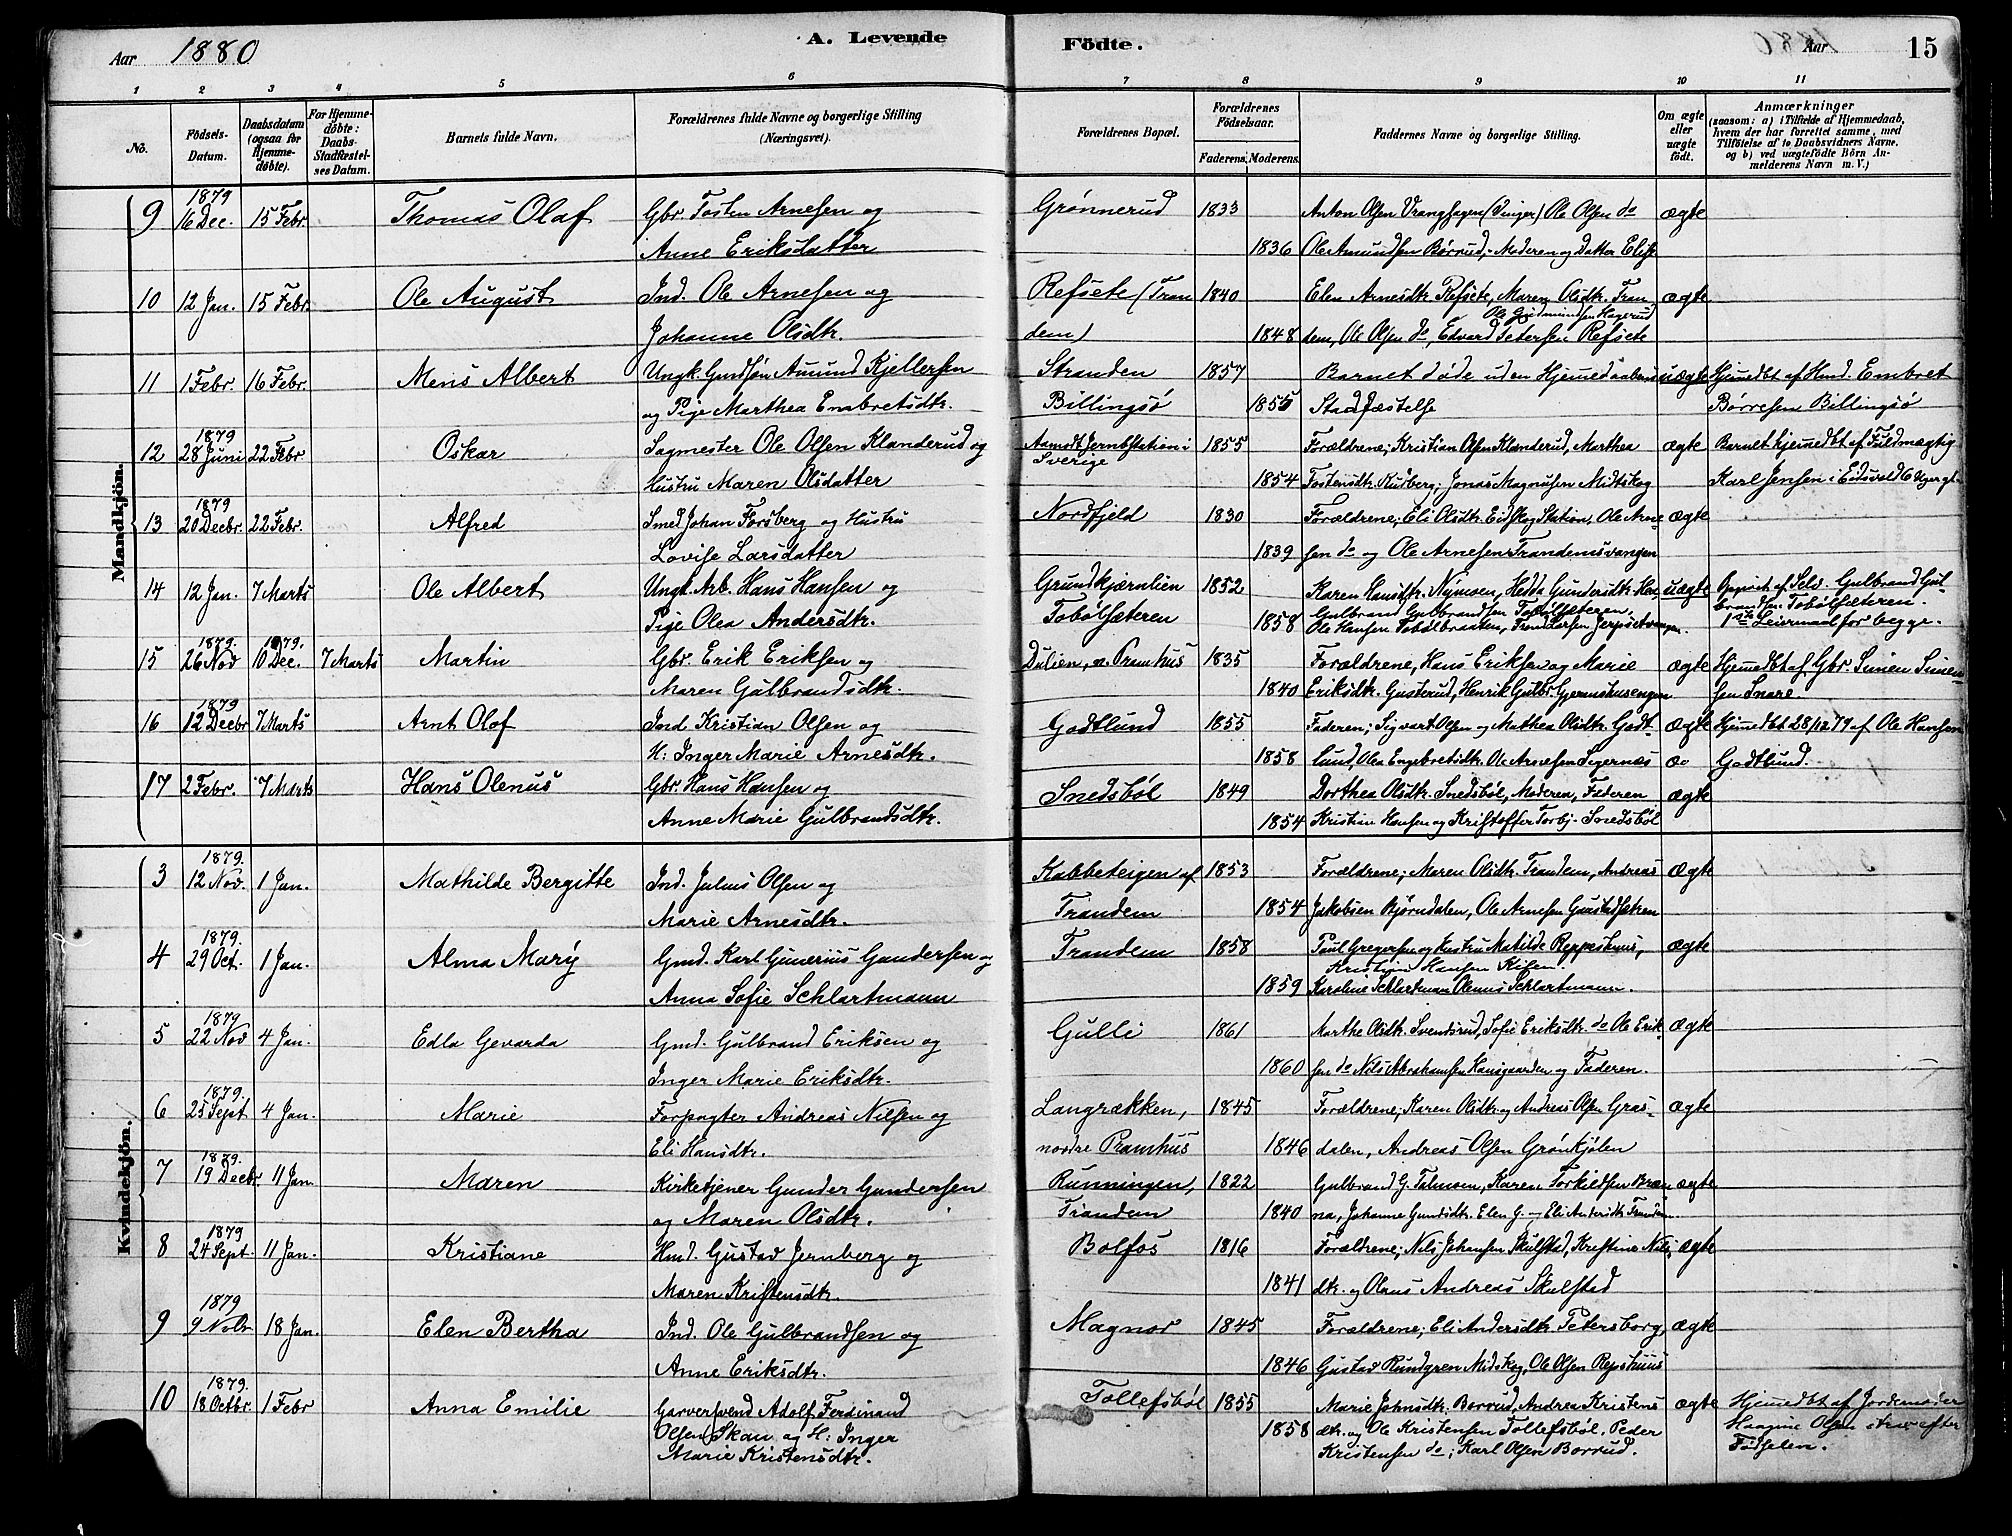 Aar 1880
A. Levende Födte.
Aar
15
1 2 3 4 5 6 7 8 9 10 11
No.
Födsels-Datum.
Daabsdatum (ogsaa for Hjemme-döbte).
For Hjemme-döbte: Daabs-Stadfæstel-ses Datum.
Barnets fulde Navn.
Forældrenes fulde Navne og borgerlige Stilling (Næringsvei).
Forældrenes Bopæl.
Forældrenes Födselsaar.
Faderens. Moderens.
Faddernes Navne og borgerlige Stilling.
Om ægte eller uægte födt.
Anmærkninger
(saasom: a) i Tilfælde af Hjemmedaab, hvem der har forrettet samme, med Tilföielse af to Daabsvidners Navne, og b) ved uægtefödte Börn An-melderens Navn m. V.)
Mandkjön.
1879
9 16 Dec. 15 Febr. Thomas Olaf Gbr. Tosten Arnesen og Grønnerud 1833 Anton Olsen Vranghagen (Vinger) Ole Olsen do ægte
Anne Eriksdatter 1836 Ole Amundsen Børrud, Moderen og Datter Elise
10 12 Jan. 15 Febr. Ole August Ind. Ole Arnesen og Refsete (Tran 1840 Elen Arnesdtr. Refsete, Maren Olsdtr. Tran ægte
Ole Gudmundsen Hagerud
Johanne Olsdtr. dem) 1848 dem, Ole Olsen do, Edvard Petersen Refsete
11 1 Febr. 16 Febr. Mens Albert Ungk. Gmdsøn Amund Kjellersen Stranden 1857 Barnet døde uden Hjemmedaabens uægte Hjemmedbt af Hmd. Embret
og Pige Marthea Embretsdtr. Billingsö 1855 Stadfæstelse Børresen Billingsö
1879
12 28 Juni 22 Febr Oskar Sagmester Ole Olsen Klanderud og Aamodt Jernbstation i 1855 Forældrene; Kristian Olsen Klanderud, Marthea ægte Barnet hjemmedbt af Fuldmægtig
Hustru Maren Olsdatter Sverige 1854 Tostensdtr. Rudberg; Jonas Magnusen Midtskog Karl Jensen i Eidsvold
1879
13 20 Decbr. 22 Febr. Alfred Smed Johan Forsberg og Hustru Nordfjeld 1830 Forældrene; Eli Olsdtr. Eidskog Station, Ole Arne ægte
Lovise Larsdatter 1839 sen do og Ole Arnesen Trandemsvangen
14 12 Jan. 7 Marts Ole Albert Ungk. Arb. Hans Hansen og Grundkjærnlien 1852 Karen Hansdtr. Nymoen, Hedda Gundersdtr. uægte Opgivet af Selv. Gulbrand Gul-
Gulbrand Gulbrandsen Tobölsæteren, brandsen Tobölsæteren.
Pige Olea Andersdtr. Tobölsæteren 1858 Ole Hansen Tobølbraaten, Trond Larsen 1ste Leiermaal for begge.
1879. 1879.
15 26 Nov 10 Dec. 7 Marts Martin Gbr. Erik Eriksen og Dulien, Pramhus 1835 Forældrene, Hans Eriksen og Marie ægte Hjemmedbt af Gbr. Simen Simen-
Maren Gulbrandsdtr. 1840 Eriksdtr. Gusterud, Henrik Gulbr. Gjermshusengen sen Snare.
1879
16 12 Decbr 7 Marts Arnt Olof Ind. Kristian Olsen og Godtlund 1855 Faderen; Sigvart Olsen og Mathea Olsdtr. Godt- ægte Hjemmedbt 28/12 79 af Ole Hansen
H: Inger Marie Arnesdtr. 1858 lund, Olea Engebretsdtr. Ole Arnesen Sigernæs Godtlund.
17 2 Febr. 7 Marts Hans Olenus Gbr. Hans Hansen og Snedsböl 1849 Dorthea Olsdtr. Snedsböl, Moderen, Faderen ægte
Anne Marie Gulbrandsdtr. 1854 Kristian Hansen og Kristoffer Torbj. Snedsböl
Kvindekjön.
1879.
3 12 Nov. 1 Jan. Mathilde Bergitte Ind. Julius Olsen og Kabbeteigen af 1853 Forældrene; Maren Olsdtr. Trandem, Andreas ægte
Marie Arnesdtr. Trandem 1854 Jakobsen Bjørndalen, Ole Arnesen
1879.
4 29 Oct. 1 Jan. Alma Mary Gmd. Karl Gunerius Gundersen og Trandem 1858 Paul Gregersen og Hustru Matilde Reppeshuus, ægte
Kristian Hansen
Anna Sofie Schlartmann 1859 Karoline Schlartmann Olenus Schlartmann.
1879
5 22 Nov 4 Jan. Edla Gevarda Gmd. Gulbrand Eriksen og Gulli 1861 Marthe Olsdtr. Svendsrud, Sofie Eriksdtr. do Ole Erik- ægte
Inger Marie Eriksdtr. 1860 sen do Nils Abrahamsen Hansgaarden og Faderen.
1879.
6 25 Sept 4 Jan. Marie Forpagter Andreas Nilsen og Langrækken, 1845 Forældrene; Karen Olsdtr. og Andreas Olsen Græs- ægte
Eli Hansdtr. nordre Pramhus 1846 dalen, Andreas Olsen Grønkjølen
1879.
7 19 Decbr 11 Jan Maren Kirketjener Gunder Gundersen Runningen, 1822 Gulbrand G. Karen Torkildsen ægte
og Maren Olsdtr. Trandem 1840 na, Johanne Gundsdtr. Elen G. — Eli Andersdtr Trandem
1879
8 24 Sept. 11 Jan. Kristiane Hmd. Gustav Jernberg og Bolfos 1816 Forældrene; Nils Johansen Skulstad, Krestine Nils- ægte
Maren Kristensdtr. 1841 dtr. og Olaus Andreas Skulstad
1879
9 9 Novbr 18 Jan. Elen Bertha Ind. Ole Gulbrandsen og Magnor 1845 Forældrene; Eli Andersdtr. Petersborg, ægte
Anne Eriksdtr. 1846 Gustav Rundgren Midskog, Ole Olsen Repshuus
1879.
10 18 Octbr. 1 Febr Anna Emilie Garversvend Adolf Ferdinand Tollefsböl 1855 Marie Johnsdtr. Borrud, Andrea Kristens ægte Hjemmedbt af Jordemoder
Olsen Skau og H: Inger 1858 dtr. og Ole Kristensen Tollefsböl, Peder Olsen strax efter
Marie Kristensdtr. Kristensen do; Karl Olsen Borrud. Fødselen.